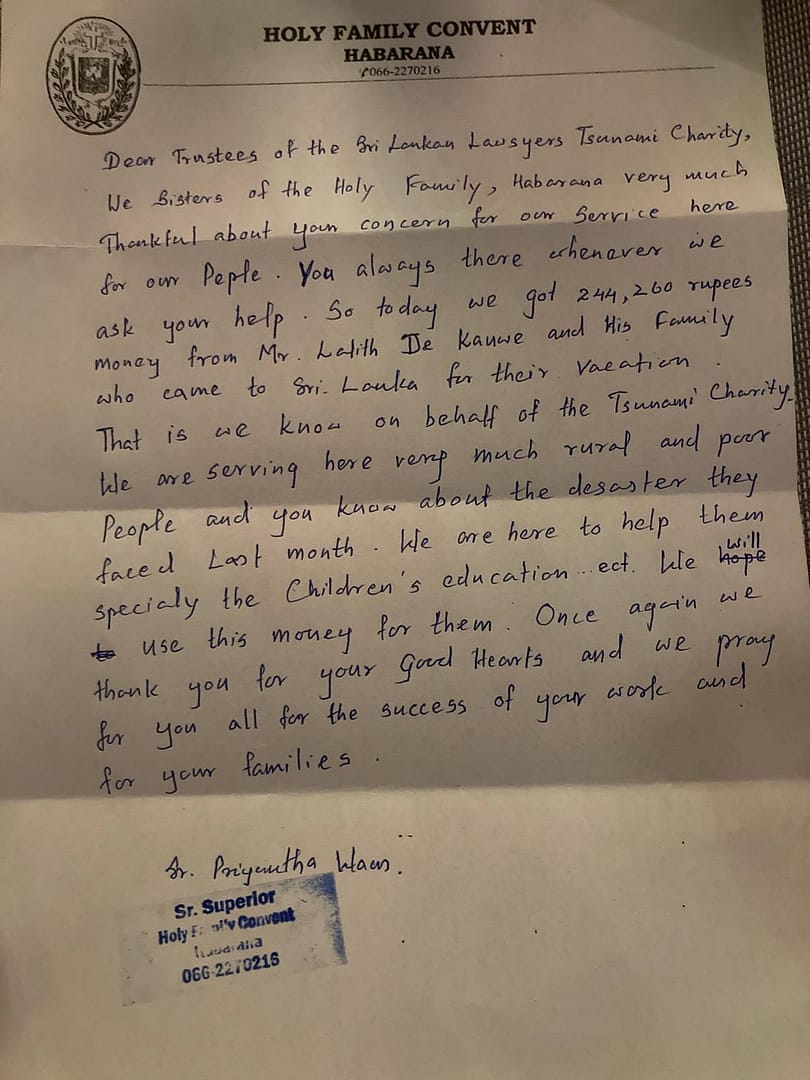 HOLY FAMILY CONVENT
HABARANA
✆066-2270216
Dear Trustees of the Sri Lankan Lawsyers Tsunami Charity,
We Sisters of the Holy Family, Habarana very much
Thankful about your concern for our Service here
for our Peple. You always there whenever we
ask your help. So today we got 244,260 rupees
money from Mr. Lalith De Kauwe and His Family
who came to Sri-Lanka for their vacation.
That is we know on behalf of the Tsunami Charity.
We are serving here very much rural and poor
People and you know about the desaster they
faced Last month. We are here to help them
specialy the Children's education..ect. We hope will
to use this money for them. Once again we
thank you for your Good Hearts and we pray
for you all for the success of your work and
for your families.
Sr. Priyantha
Sr. Superior
Holy Family Convent
Habarana
066-2270216